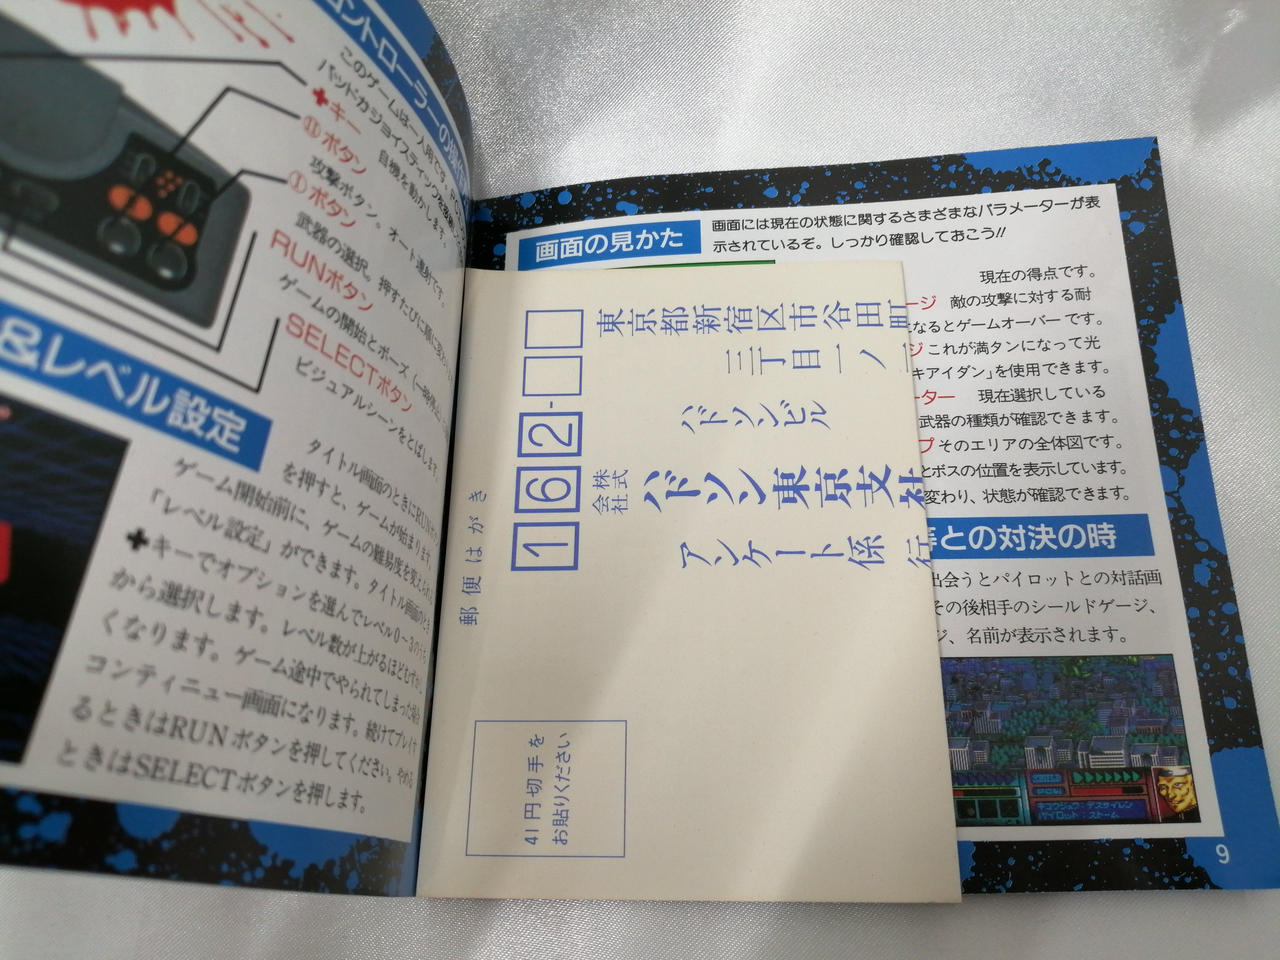 コントローラーの
このゲームは一人用です。
パッドかジョイスティックを
✚キー 自機を動かします。
Ⅱボタン
攻撃ボタン。オート連射です。
Ⅰボタン
武器の選択。押すたびに順に
RUNボタン
ゲームの開始とポーズ(一時停止
SELECTボタン
ビジュアルシーンをとばします。
&レベル設定
タイトル画面のときにRUN
を押すと、ゲームが始まります。
ゲーム開始前に、ゲームの難易度を変えられる
「レベル設定」ができます。タイトル画面のとき
✚キーでオプションを選んでレベル0~3のうち
から選択します。レベル数が上がるほどむずかし
くなります。ゲーム途中でやられてしまった場合
コンティニュー画面になります。続けてプレイす
るときはRUNボタンを押してください。やめる
ときはSELECTボタンを押します。
画面の見かた
画面には現在の状態に関するさまざまなパラメーターが表
示されているぞ。しっかり確認しておこう!!
現在の得点です。
ージ 敵の攻撃に対する耐
なるとゲームオーバーです。
ジ これが満タンになって光
キアイダン」を使用できます。
ーター 現在選択している
武器の種類が確認できます。
プ そのエリアの全体図です。
とボスの位置を表示しています。
変わり、状態が確認できます。
等との対決の時
出会うとパイロットとの対話画
その後相手のシールドゲージ、
ジ、名前が表示されます。
SHIELD
POW
キュウジュウ:デスサイレン
パイロット:ストーム
9
郵便はがき
162-
東京都新宿区市谷田町
三丁目一ノ
ハドソンビル
株式会社 ハドソン東京支社
アンケート係 行
41円切手を
お貼りください